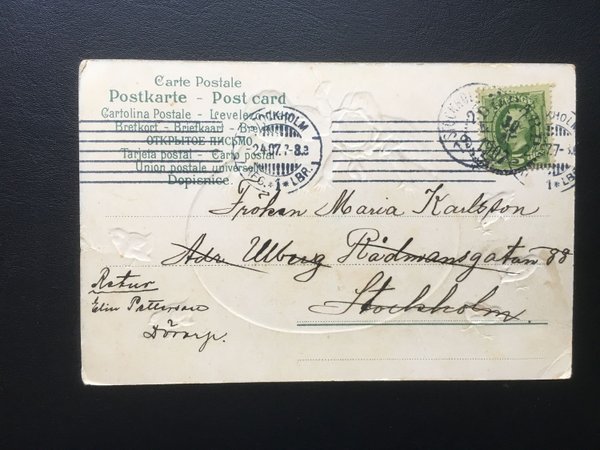 Carte Postale
Postkarte - Post card
Cartolina Postale - Levelező
Brefkort - Briefkaart - Brev
ОТКРЫТОЕ ПИСЬМО
Tarjeta postal - Carta postal
Union postale universelle
Dopisnice.
STOCKHOLM
24.07.
1 * LBR.
Fröken Maria Karlsson
Adr Ulberg Rådmansgatan 88
Stockholm.
Retur
Elin Pettersson